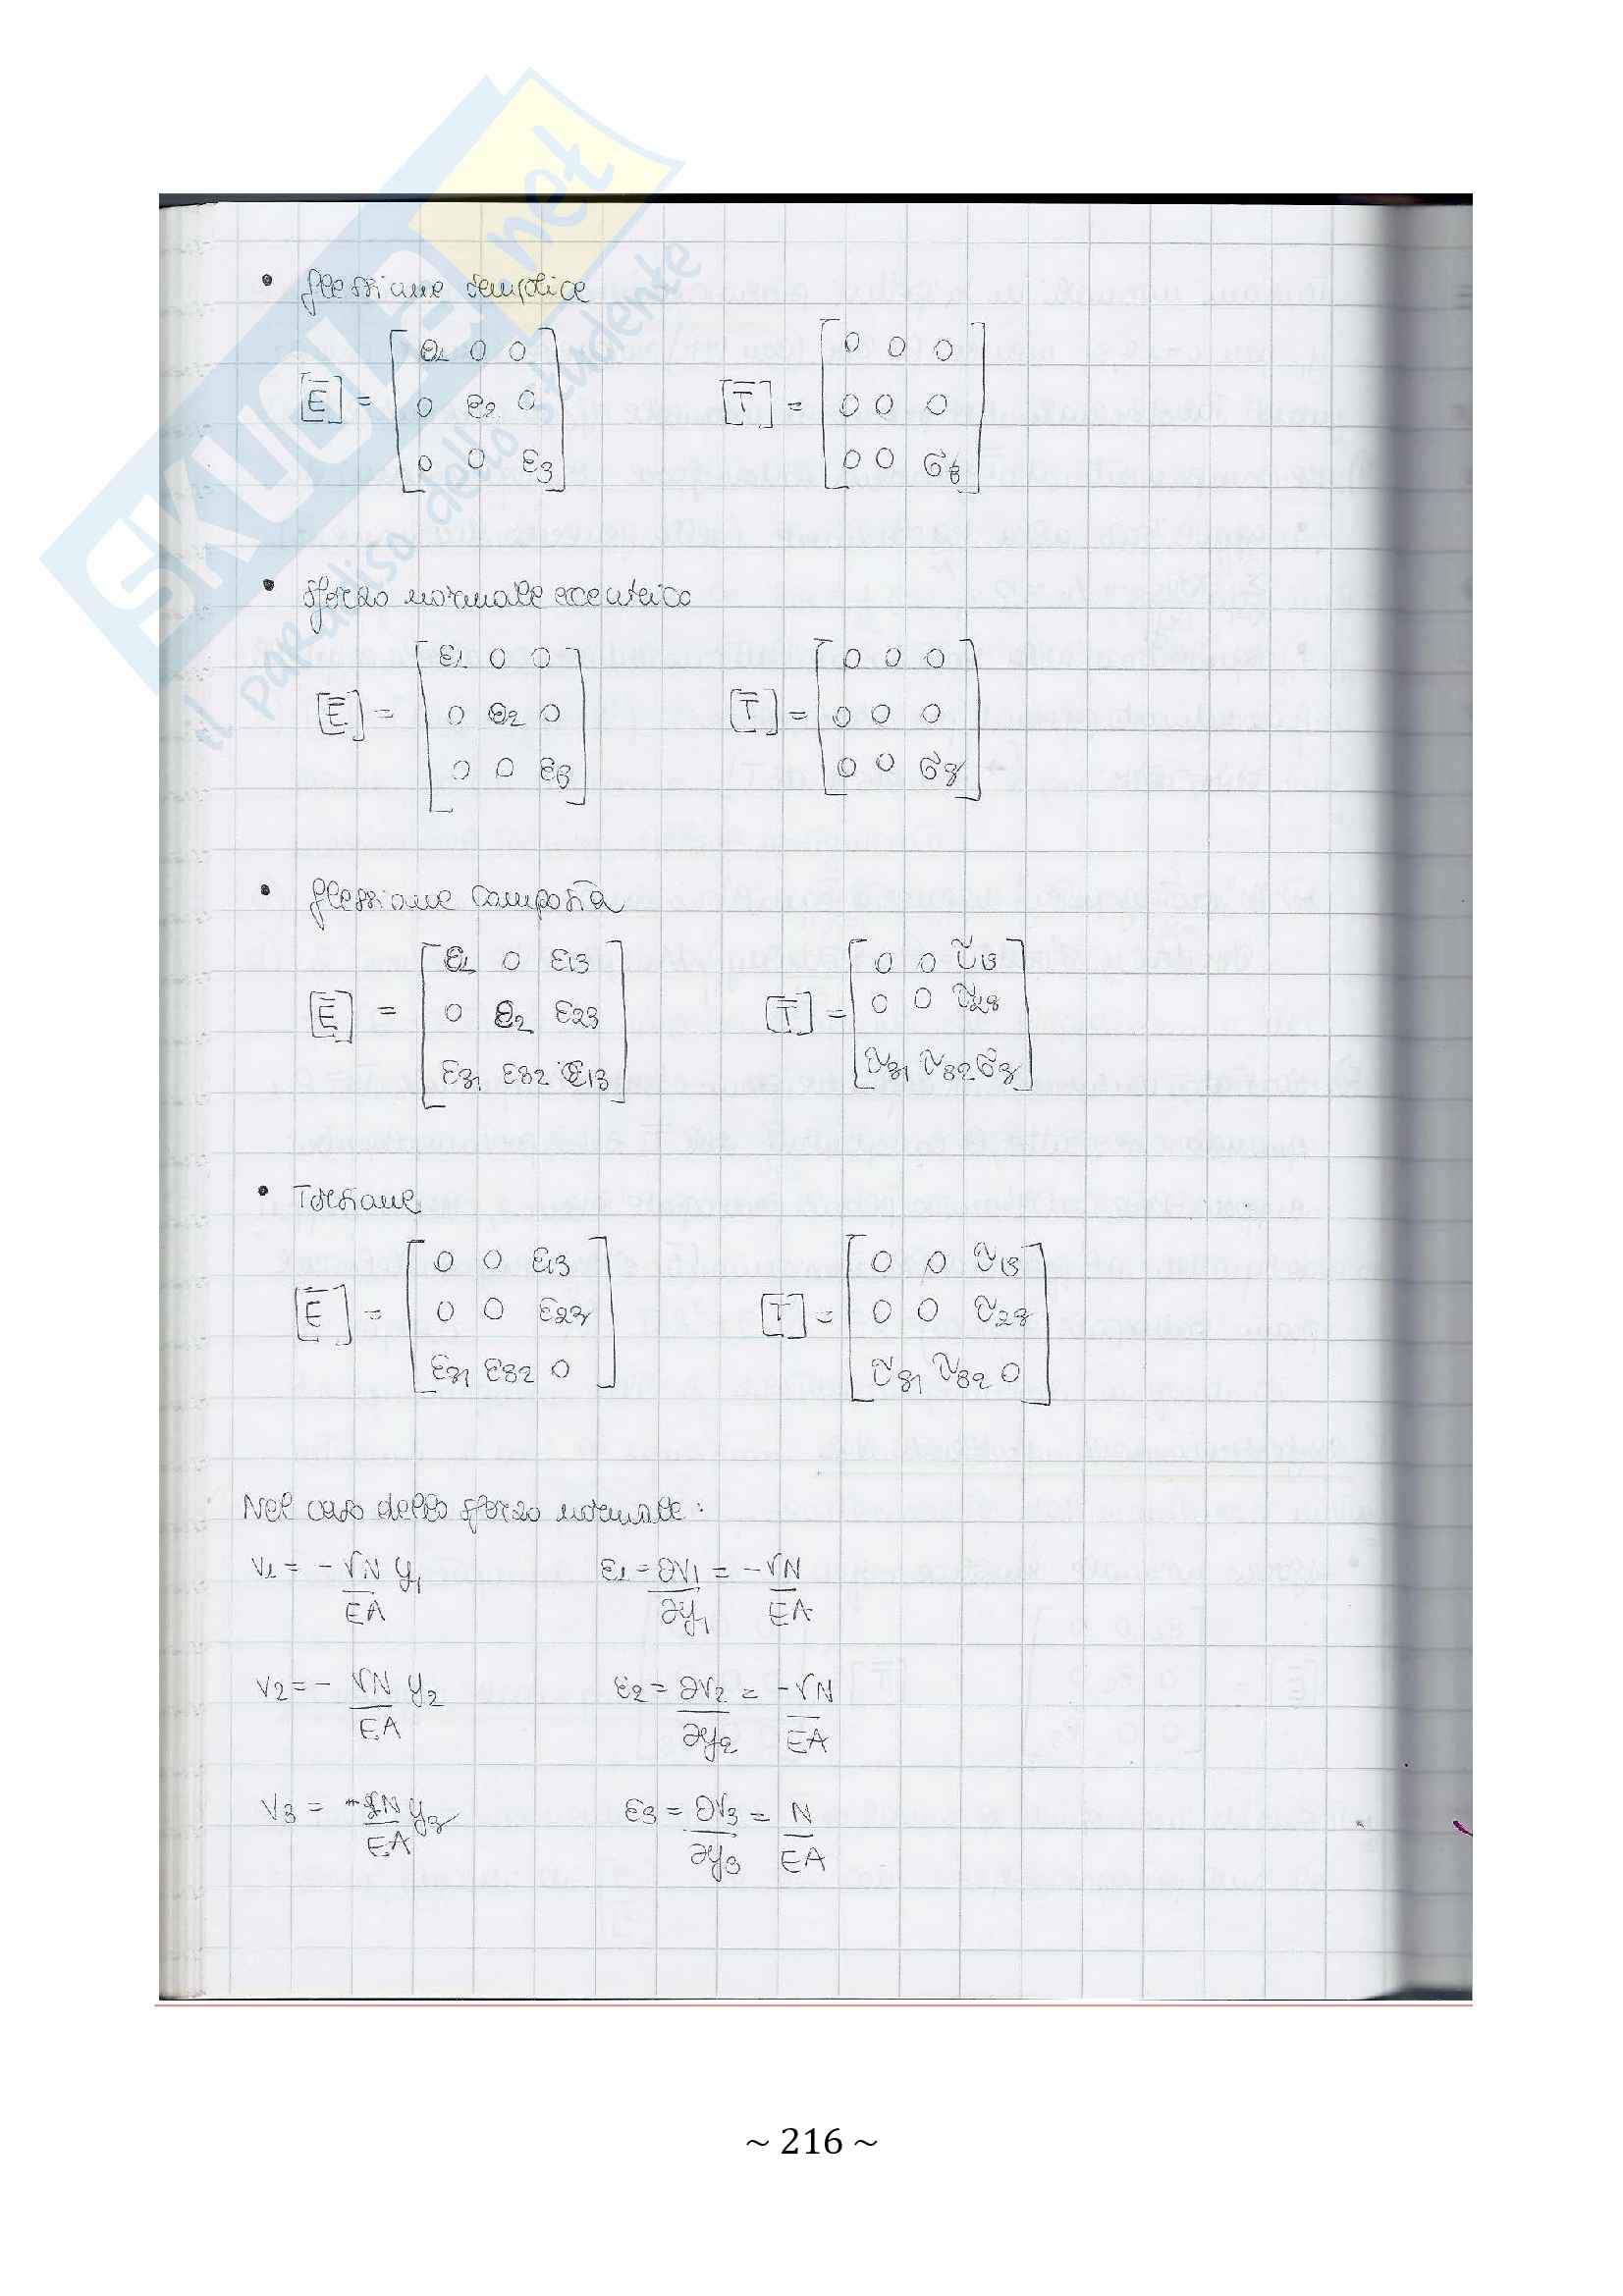 SKUOLA.net
il paradiso dello studente
• flessione semplice
[E̅] = [ε1 0 0
0 ε2 0
0 0 ε3]
[T̅] = [0 0 0
0 0 0
0 0 σ3]
• sforzo normale eccentrico
[E̅] = [ε1 0 0
0 ε2 0
0 0 ε3]
[T̅] = [0 0 0
0 0 0
0 0 σ3]
• flessione composta
[E̅] = [ε1 0 ε13
0 ε2 ε23
ε31 ε32 ε13]
[T̅] = [0 0 τ13
0 0 τ23
τ31 τ32 σ3]
• Torsione
[E̅] = [0 0 ε13
0 0 ε23
ε31 ε32 0]
[T̅] = [0 0 τ13
0 0 τ23
τ31 τ32 0]
Nel caso dello sforzo normale:
v1 = - νN/EA y1 ε1 = ∂v1/∂y1 = -νN/EA
v2 = - νN/EA y2 ε2 = ∂v2/∂y2 = -νN/EA
v3 = N/EA y3 ε3 = ∂v3/∂y3 = N/EA
~ 216 ~